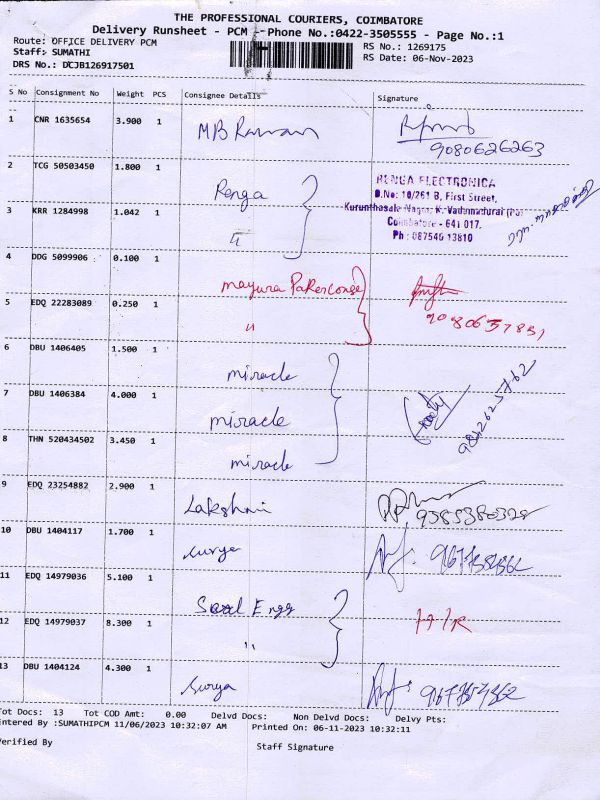 THE PROFESSIONAL COURIERS, COIMBATORE
Delivery Runsheet - PCM - Phone No.:0422-3505555 - Page No.:1
Route: OFFICE DELIVERY PCM
RS No.: 1269175
Staff: SUMATHI
RS Date: 06-Nov-2023
DRS No.: DCJB126917501
S No Consignment No Weight PCS Consignee Details Signature
1 CNR 1635654 3.900 1 MB Raman
9080626263
2 TCG 50503450 1.800 1 Renga
RENGA ELECTRONICA
D.No: 10/261 B, First Street,
3 KRR 1284998 1.042 1 "
Kurunthasala Nagar, K. Vadamadurai (Po)
Coimbatore - 641 017.
Ph : 087546 13810
4 DDG 5099906 0.100 1 mayura
5 EDQ 22283089 0.250 1 "
9080657851
6 DBU 1406405 1.500 1 miracle
7 DBU 1406384 4.000 1 miracle
8 THN 520434502 3.450 1 miracle
9 EDQ 23254882 2.900 1 Lakshmi
9585380328
10 DBU 1404117 1.700 1 surya
11 EDQ 14979036 5.100 1 Engg
12 EDQ 14979037 8.300 1 "
13 DBU 1404124 4.300 1 Surya
Tot Docs: 13 Tot COD Amt: 0.00 Delvd Docs: Non Delvd Docs: Delvy Pts:
ntered By :SUMATHIPCM 11/06/2023 10:32:07 AM Printed On: 06-11-2023 10:32:11
erified By
Staff Signature